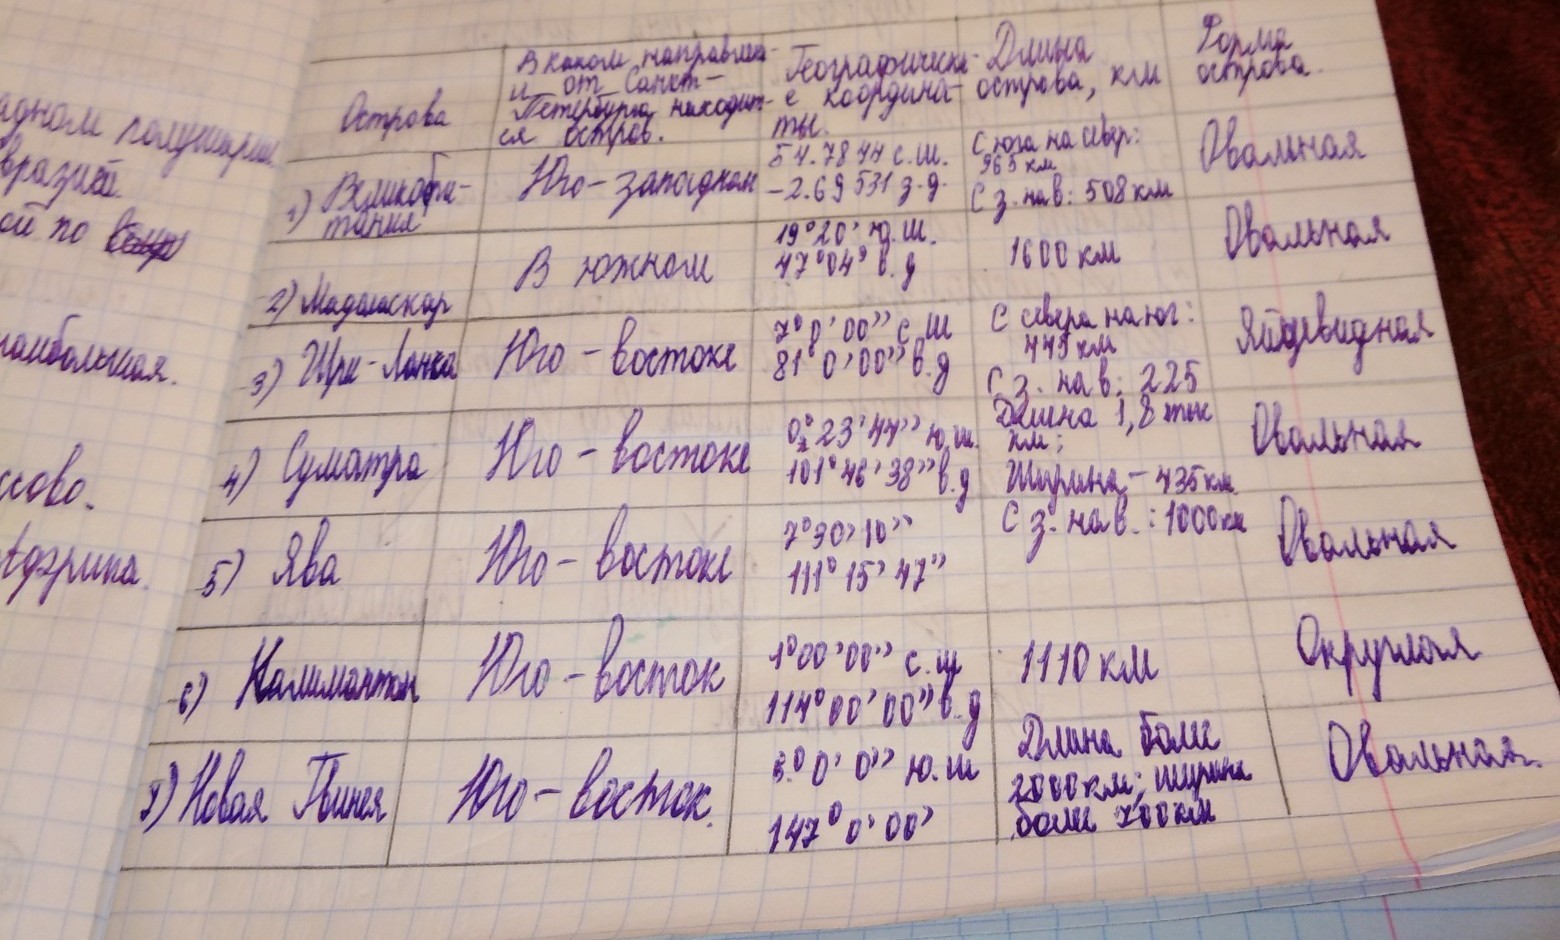 адном полушарии.
вразией
ой по
наибольшая.
ссово.
Острова
В каком направлен-
и от Санкт-
Петербурга находит-
ся остров.
Географически-
е координа-
ты.
Длина
острова, км
Форма
острова.
1) Великобри-
тания
Юго-западном
54.7844 с.ш.
-2.69531 з.д.
С юга на север:
965 км
С з. на в: 508 км
Овальная
2) Мадагаскар
В южном
19°20' ю.ш.
47°04' в.д
1600 км
Овальная
3) Шри-Ланка
Юго-востоке
7°0'00" с.ш
81°0'00" в.д
С севера на юг:
445 км
С з. на в: 225
Яйцевидная
4) Суматра
Юго-востоке
0°23'44" ю.ш.
101°46'38" в.д
Длина 1,8 тыс
км;
Ширина - 435 км.
Овальная
5) Ява
Юго-востоке
7°30'10"
111°15'47"
С з. на в. : 1000 км
Овальная
6) Калимантан
Юго-восток
1°00'00" с.ш
114°00'00" в.д
1110 км
Округлая
7) Новая Гвинея
Юго-восток.
5°0'0" ю.ш
147°0'00'
Длина более
2000 км; ширина
более 700 км
Овальная.